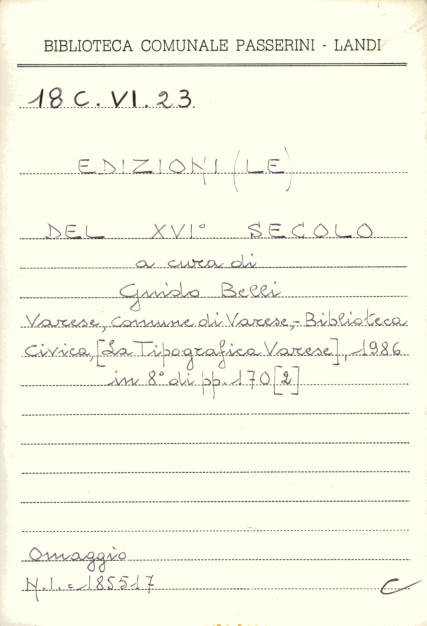 BIBLIOTECA COMUNALE PASSERINI - LANDI
18 C. VI. 23
EDIZIONI (LE)
DEL XVI° SECOLO
a cura di
Guido Belli
Varese, Comune di Varese, - Biblioteca
Civica, [La Tipografica Varese], 1986
in 8° di pp. 170 [2]
Omaggio
N.I. = 185517
C